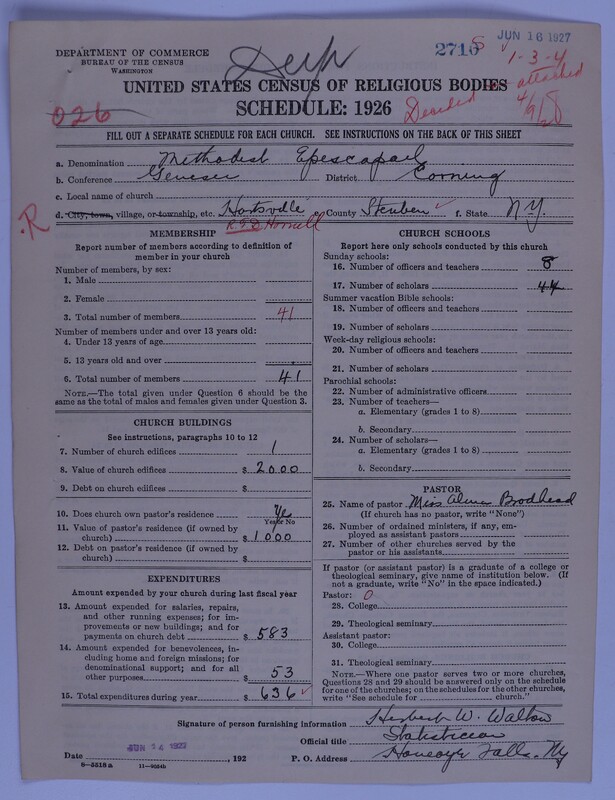 JUN 16 1927
2710 S
1-3-4
attached
4/9/28
DEPARTMENT OF COMMERCE
BUREAU OF THE CENSUS
WASHINGTON
UNITED STATES CENSUS OF RELIGIOUS BODIES
SCHEDULE: 1926
026
FILL OUT A SEPARATE SCHEDULE FOR EACH CHURCH. SEE INSTRUCTIONS ON THE BACK OF THIS SHEET
a. Denomination Methodist Episcopal
b. Conference Genesee District Corning
c. Local name of church
d. City, town, village, or township, etc. Hartsville e. County Steuben f. State N.Y.
R
RFD Hornell
MEMBERSHIP
Report number of members according to definition of
member in your church
Number of members, by sex:
1. Male
2. Female
3. Total number of members 41
Number of members under and over 13 years old:
4. Under 13 years of age
5. 13 years old and over
6. Total number of members 41
NOTE.—The total given under Question 6 should be
the same as the total of males and females given under Question 3.
CHURCH BUILDINGS
See instructions, paragraphs 10 to 12
7. Number of church edifices 1
8. Value of church edifices $ 2000
9. Debt on church edifices $
10. Does church own pastor's residence? Yes
Yes or No
11. Value of pastor's residence (if owned by
church) $ 1000
12. Debt on pastor's residence (if owned by
church) $
EXPENDITURES
Amount expended by your church during last fiscal year
13. Amount expended for salaries, repairs,
and other running expenses; for im-
provements or new buildings; and for
payments on church debt $ 583
14. Amount expended for benevolences, in-
cluding home and foreign missions; for
denominational support; and for all
other purposes $ 53
15. Total expenditures during year $ 636
CHURCH SCHOOLS
Report here only schools conducted by this church
Sunday schools:
16. Number of officers and teachers 8
17. Number of scholars 44
Summer vacation Bible schools:
18. Number of officers and teachers
19. Number of scholars
Week-day religious schools:
20. Number of officers and teachers
21. Number of scholars
Parochial schools:
22. Number of administrative officers
23. Number of teachers—
a. Elementary (grades 1 to 8)
b. Secondary
24. Number of scholars—
a. Elementary (grades 1 to 8)
b. Secondary
PASTOR
25. Name of pastor Miss Alma Brodhead
(If church has no pastor, write "None")
26. Number of ordained ministers, if any, em-
ployed as assistant pastors
27. Number of other churches served by the
pastor or his assistants
If pastor (or assistant pastor) is a graduate of a college or
theological seminary, give name of institution below. (If
not a graduate, write "No" in the space indicated.)
Pastor: 0
28. College
29. Theological seminary
Assistant pastor:
30. College
31. Theological seminary
NOTE.—Where one pastor serves two or more churches,
Questions 28 and 29 should be answered only on the schedule
for one of the churches; on the schedules for the other churches,
write "See schedule for church."
Signature of person furnishing information Herbert W. Walton
Official title Statistician
Date JUN 14 1927, 192 P. O. Address Honeoye Falls, Ny
8—5518a 11—9264b